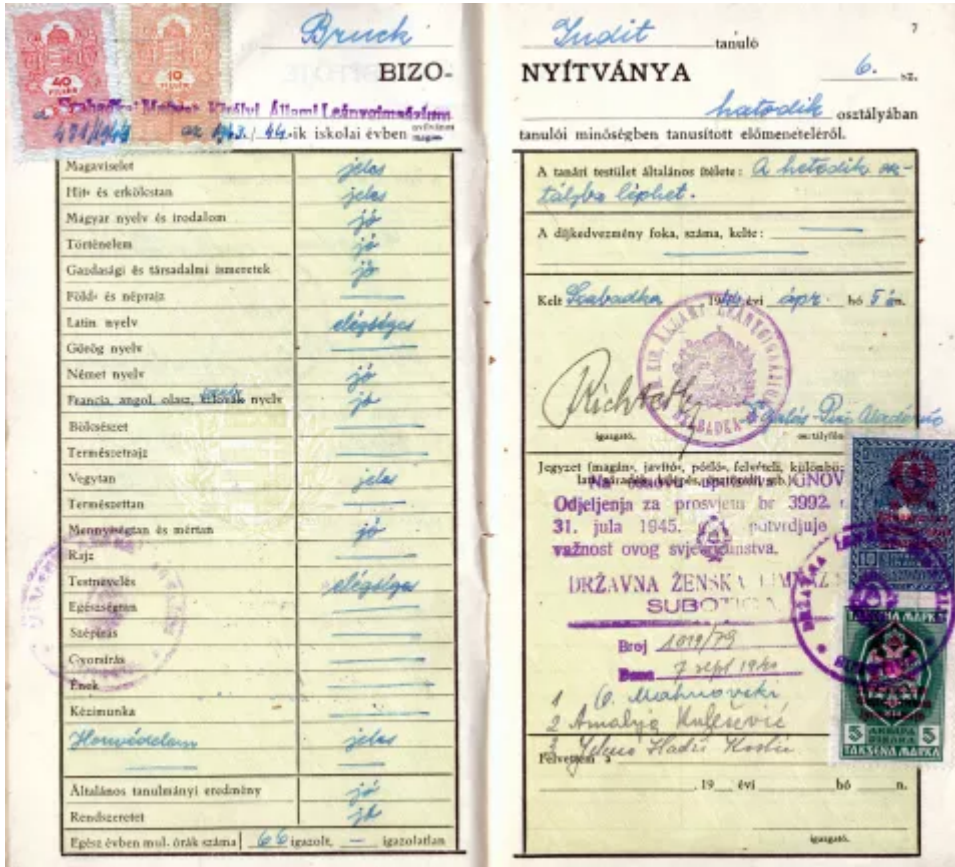 Bruck
BIZO-
40
FILLÉR
10
FILLÉR
a Szabadkai Magyar Királyi Állami Leánygimnázium
az 1943/44-ik iskolai évben nyilvános
magán-
Magaviselet jeles
Hit- és erkölcstan jeles
Magyar nyelv és irodalom jó
Történelem jó
Gazdasági és társadalmi ismeretek jó
Föld- és néprajz —
Latin nyelv elégséges
Görög nyelv —
Német nyelv jó
Francia, angol, olasz, szlovák nyelv jó
Bölcsészet —
Természetrajz —
Vegytan jeles
Természettan —
Mennyiségtan és mértan jó
Rajz —
Testnevelés elégséges
Egészségtan —
Szépírás —
Gyorsírás —
Ének —
Kézimunka —
Honvédelem jeles
—
Általános tanulmányi eredmény jó
Rendszeretet jó
Egész évben mul. órák száma 66 igazolt, — igazolatlan
7
Judit tanuló
NYÍTVÁNYA 6. sz.
hatodik osztályában
tanulói minőségben tanusított előmeneteléről.
A tanári testület általános ítélete: A hetedik osztályba
léphet.
A díjkedvezmény foka, száma, kelte: —
Kelt Szabadka 1944 évi ápr. hó 5 én.
KIR. ÁLLAMI LEÁNYGIMNÁZIUM
SZABADKA
igazgató. osztályfő
Jegyzet (magán-, javító-, pótló-, felvételi, különbözeti
Na osnovu GNOV
Odjeljenja za prosvjetu br 3992.
31. jula 1945. g. potvrdjuje
važnost ovog svjedočanstva.
DRŽAVNA ŽENSKA GIMNAZIJA
SUBOTICA
Broj 1019/79
Dana 7 sept 19
1
2 Amalija
3
Felvétetett a
19 évi hó n.
igazgató.
10
TAKSENA MARKA
5 5
TAKSENA MARKA